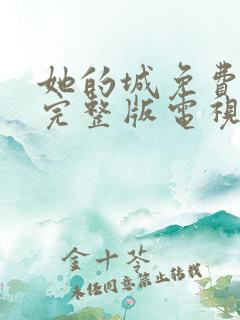 她的城免費
完整版電視
金十苓
未經同意禁止轉載